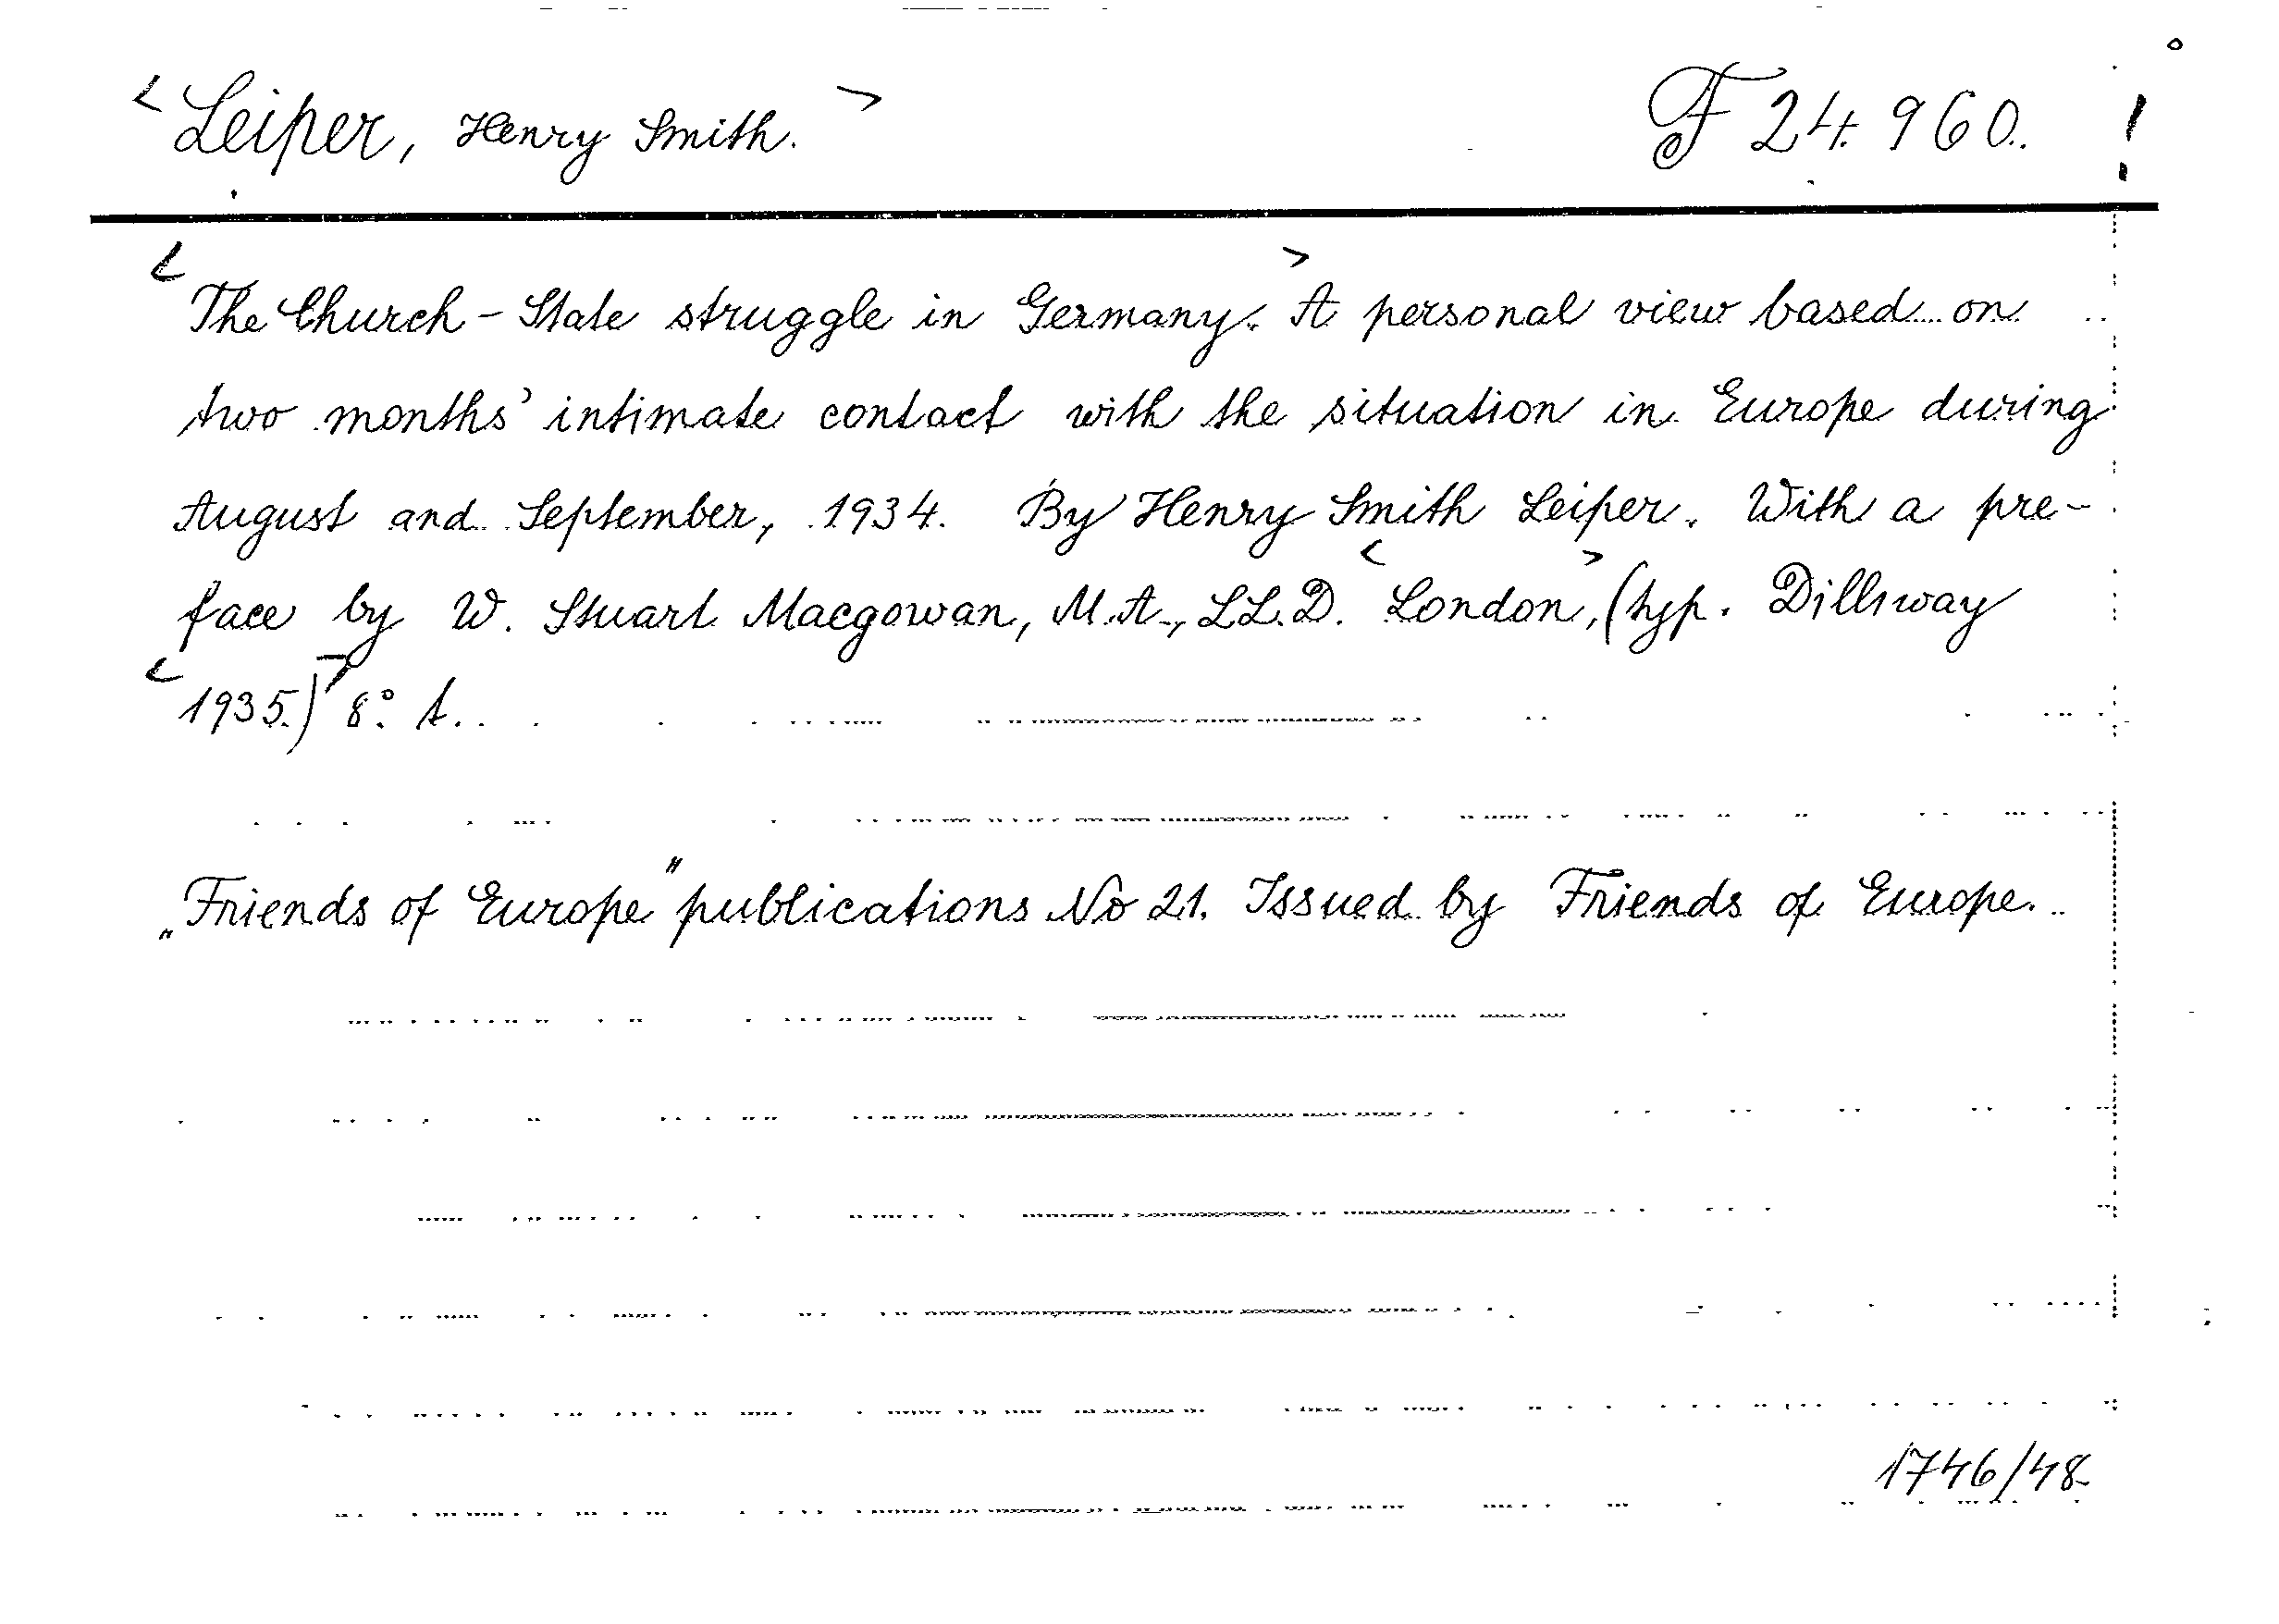 <Leiper, Henry Smith.> F 24.960. !
<The Church-State struggle in Germany.> A personal view based on
two months' intimate contact with the situation in Europe during
August and September, 1934. By Henry Smith Leiper. With a pre-
face by W. Stuart Macgowan, M.A., LL.D. <London>, (typ. Dillway
<1935.)> 8° t.
„Friends of Europe" publications No 21. Issued by Friends of Europe.
1746/48